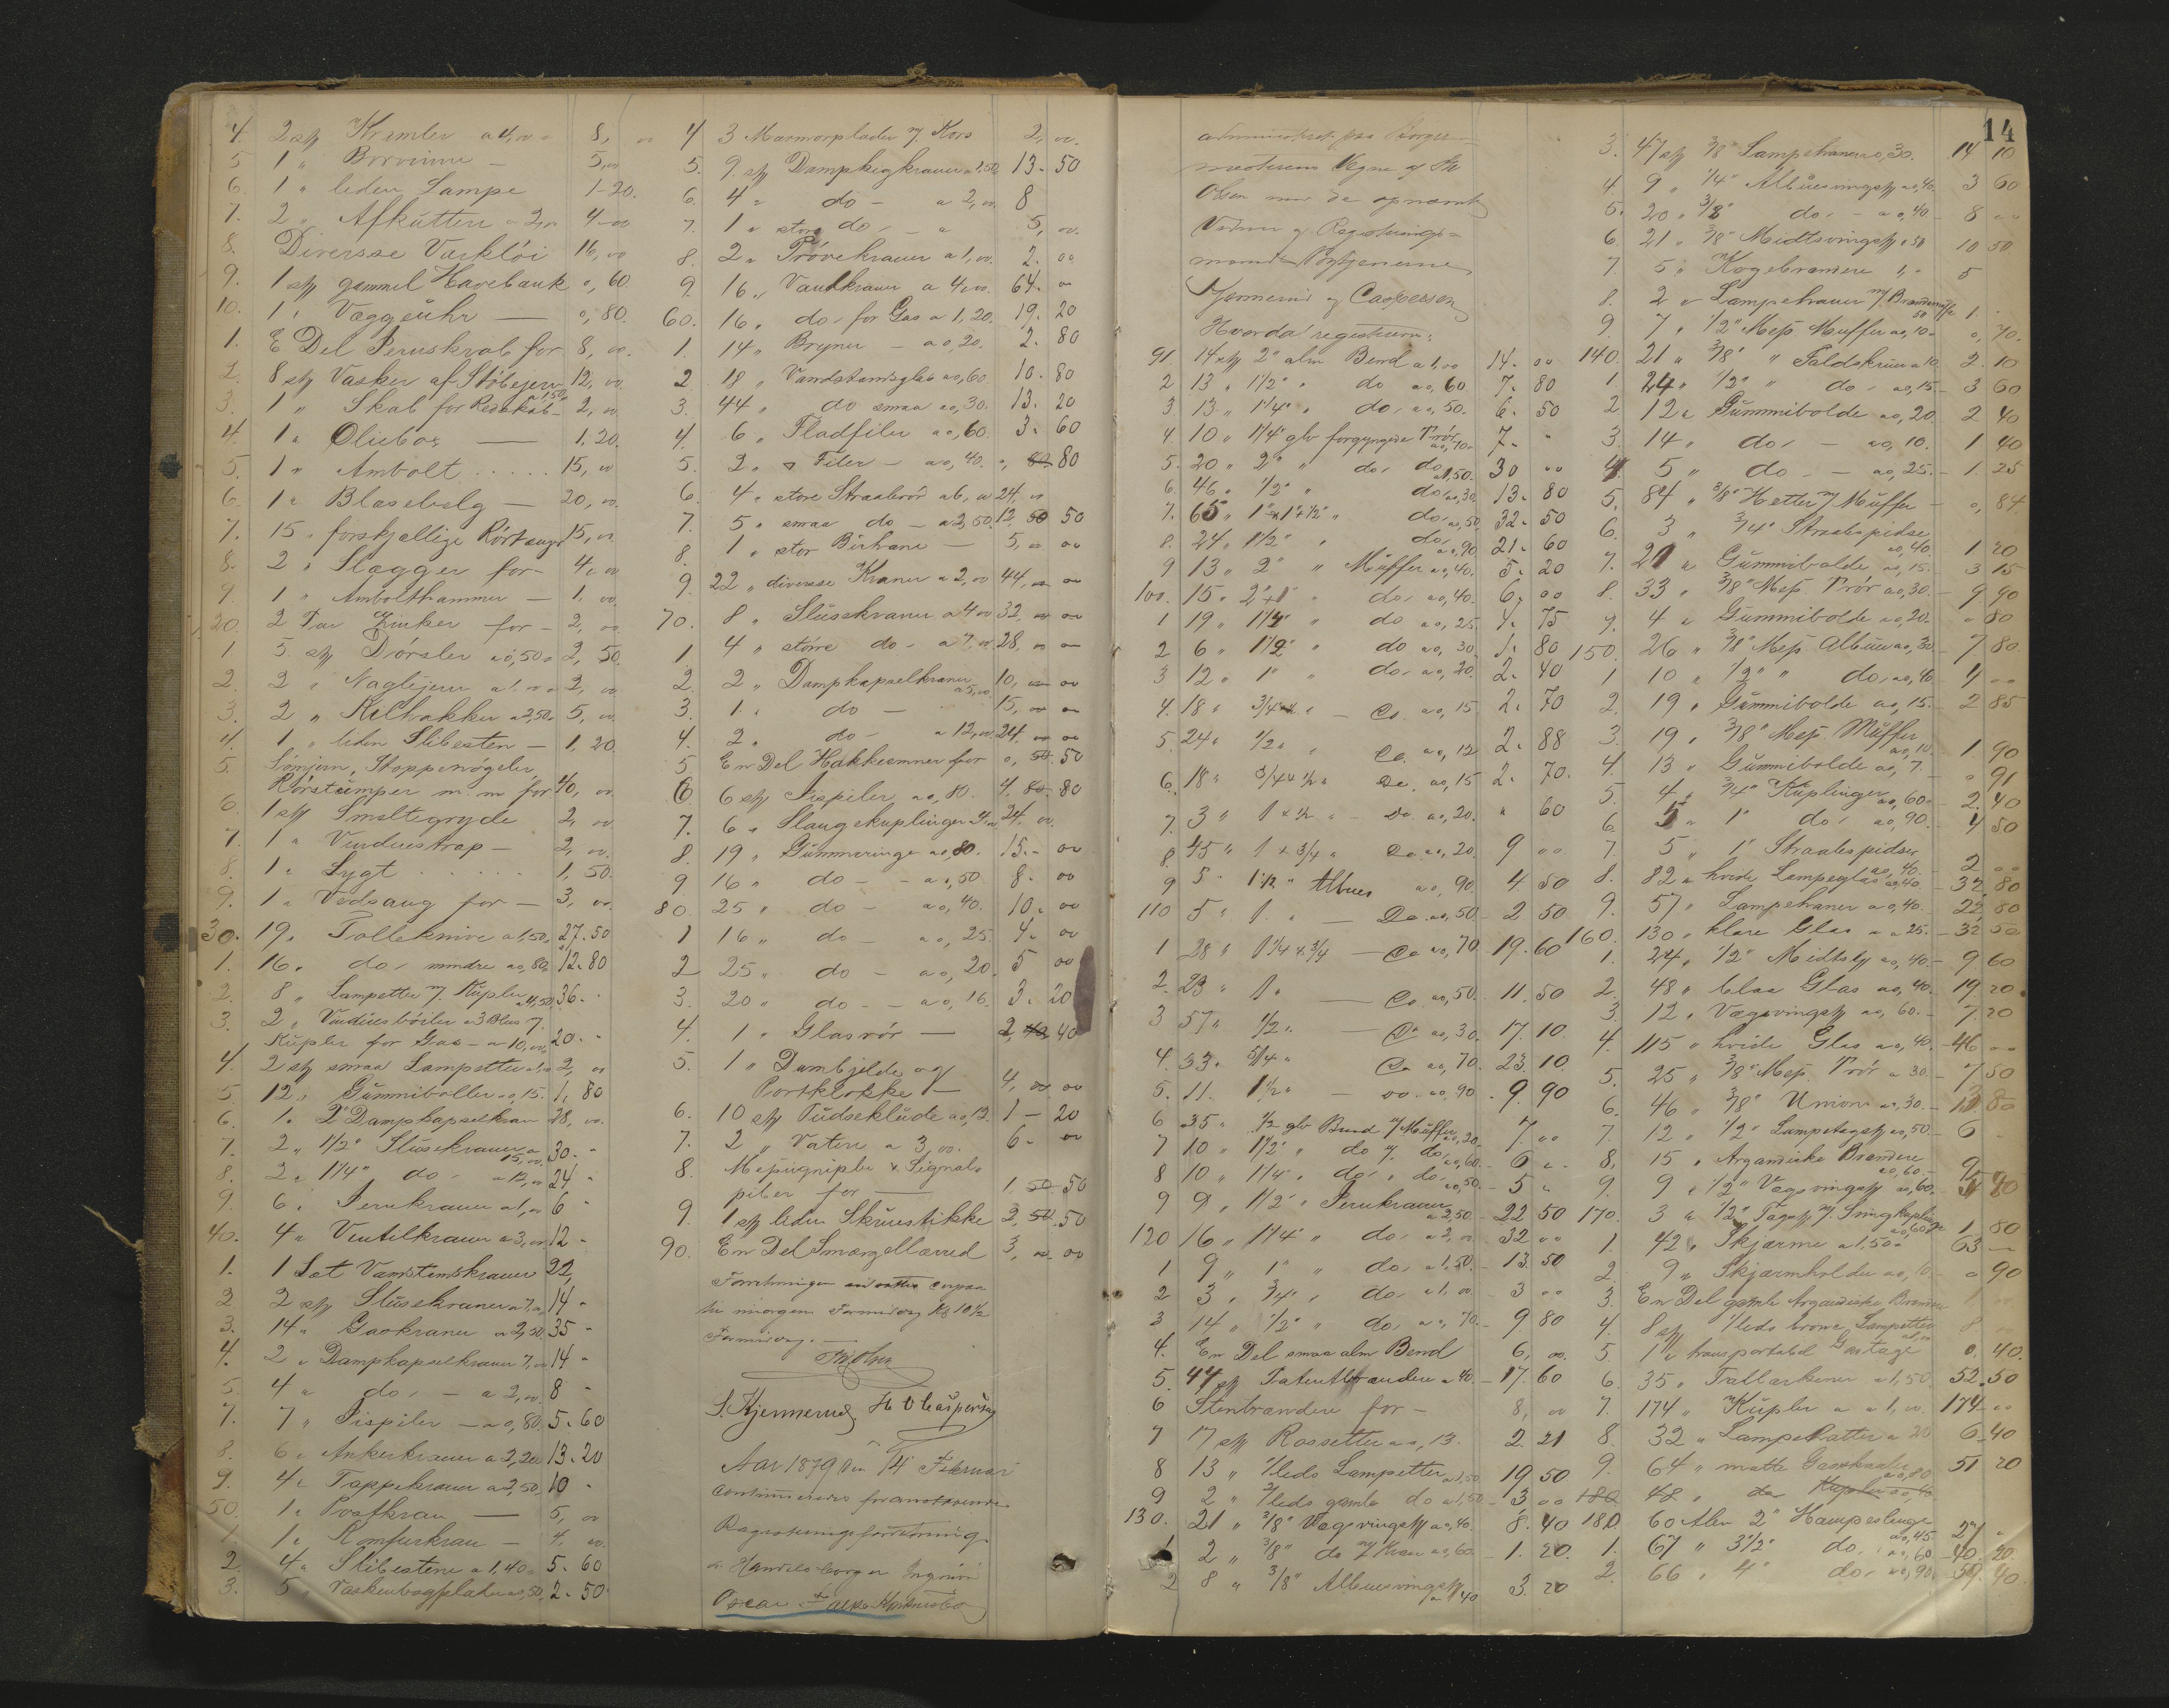 4. 2 st Kramler a 4,00 - 8, 00
5 1 " Borvinne - 5,00
6. 1 " liden Lampe 1-20.
7. 2 " Afkuttere a 2,00 4-00
8. Diversse Værktöi 16,00
9. 1 st gammel Havebænk 0,60
10. 1 " Væggeuhr — 0,80.
1. E Del Jernskrab for 8, 00.
2. 8 st Vasker af Stöbejern a 1,50 12, 00
3. 1 " Skab for Redskab - 2, 00
4. 1 " Oliebox — 1,20.
5. 1 " Ambolt ..... 15, 00
6. 1 " Blæsebelg - 20, 00.
7. 15 " forskjellige Rörtænger 15, 00
8. 2 " Slægger for - 4, 00
9. 1 " Ambolthammer - 1, 00.
20. 2 Par Zinker for - 2, 00
1 5 st Dörsler a 0,50 - 2, 50.
2. 2 " Naglejern a 1.00 - 2, 00
3. 2 " Kilhakker a 2,50. 5, 00.
4. 1 " liden Slibesten - 1, 20.
5. Lömjern, Stoppenögeler,
Rörstumper m. m for 40, 00.
6. 1 st Smeltegryde 2, 00
7. 1 " Vinduestrap - 2, 00.
8. 1 " Lygt ...... 1, 50.
9. 1 " Vedsaug for - 3, 00.
30. 19 " Tolleknive a 1,50. 27.50
1. 16 " do, mindre a 0,80 12.80
2. 8 " Lampetter m. Kupler a 4,50 36. -
3. 2 " Vinduesböiler a 3 Blus m.
Kupler for Gas - a 10,00 20. -
4. 2 st smaa Lampetter a 1,00 2, 00
5. 12 " Gummiboller a 0,15. 1, 80
6. 1 " 2" Dampkapselkran 28, 00.
7. 2 " 1 1/2" Slusekraner a 15,00 30. -
8. 2 " 1 1/4" do, a 12,00 24 -
9. 6 " Jernkraner a 1,00 6 -
40. 4 " Ventilkraner a 3,00 12 -
1. 1 Sæt Vandstandskraner 22,
2 2 st Slusekraner a 7,00 14 -
3. 14 " Gaskraner a 2,50. 35 -
4. 2 " Dampkapselkraner 7,00 14 -
5. 4 " do, - a 2,00 8 -
7. 7 " Pispiler - a 0,80. 5.60
8. 6 " Ankerkraner a 2,20 13.20
9. 4 " Tappekraner a 2,50. 10 -
50. 1 " Postkran — 5, 00
1 1 " Komfurkran - 4, 00.
2. 4 " Slibestene a 1,40 - 5.60
3. 5 " Vaskenbagplader a 0,50. 2.50
4 3 Marmorplader m. Kors 2, 00.
5. 9 st Dampkigkraner a 1,50. 13.50
6. 4 " do - a 2,00. 8
7. 1 " store do, - a 5, 00.
8. 2 " Prövekraner a 1,00. 2. 00
9. 16 " Vandkraner a 4,00. 64. 00
60. 16 " do, for Gas a 1,20. 19. 20
1. 14 " Bryner - a 0,20. 2. 80
2 18 " Vandstandsglas a 0,60 10. 80
3. 44 " do smaa a 0,30. 13. 20
4. 6 " Fladfiler a 0,60 3. 60
5. 2 " Filer - a 0,40. 0, 80 80
6. 4 " store Straalerör a 6,00 24, 00
7. 5 " smaa do - a 2,50. 12, 50 50
8. 1 " stor Börkran - 5, 00 00
9. 22 " diversse Kraner a 2,00 44, 00 00
70. 8 " Slusekraner a 4,00 32, 00 00
1 4 " större do - a 7,00 28, 00 00
2. 2 " Dampkapselkraner a 5,00. 10, 00 00
3. 1 " do - 15, 00 00
4. 2 " do - a 12,00 24. 00 00
5 En Del Hakkeemner for 0, 50. 50
6 6 st Pispiler a 0,80. 4. 80. 80
7. 6 " Slangekuplinger 4,00 24. 00.
8. 19 " Gummeringe a 0,80. 15. - 00
9 16 " do - - a 0,50 8. 00
80. 25 " do - a 0,40. 10. 00
1 16 " do - a 0,25. 4. 00
2 25 " do - a 0,20. 5 00
3. 20 " do - - a 0,16. 3. 20
4. 1 " Glasrör - 2, 40 40
5. 1 " Dambjelde og
Portklokke — 4, 00 00
6. 10 st Pudseklude a 0,12. 1 - 20
7. 2 " Vatere a 3,00. 6 - 00
8. Messingpiber & Signal-
piber for — 1. 50. 50
9. 1 st liden Skruestikke 2, 50. 50
90. En Del Smergellærred 3, 00. 00
Forretningen
til imorgen Formiddag Kl 10 1/2
Formiddag. —
Th. Olsen
S. Kjennerud H O Caspersen
Aar 1879 den 14 Februar
continueredes foranstaaende
Registreringsforretning
Handelsborger Ingeniör
Oscar
administret paa Borger-
mesterens Vegne af Th
Olsen med de opnævnte
Vidner og Registrerings-
mænd
Kjennerud og Caspersen
Hvorda registrerne:
91. 14 st 2" alm Bend a 1,00 14. 00
2 13 " 1 1/2" " do a 0,60 7. 80
3 13 " 1 1/4" " do, a 0,50. 6. 50
4. 10 " 1 1/4" glv forgyngede Trör a 0,70. 7. "
5. 20 " 2" " do, do a 1,50. 30 00
6. 46 " 1/2" " do, a 0,30. 13. 80
7. 65 " 1" x 1 x 1/2" " do, a 0,50. 32. 50
8. 24 " 1 1/2" " do, a 0,90 21. 60
9 13 " 2" " Muffer a 0,40. 5. 20
100. 15 " 2" x 1" " do, a 0,40. 6, 00
1 19 " 1 1/4" " do a 0,25. 4. 75
2 6 " 1 1/2" " do a 0,30. 1. 80
3 12 " 1" " do, a 0,20. 2. 40
4. 18 " 3/4" " - Do. a 0,15 2. 70
5. 24 " 1/2" " Do. a 0,12 2. 88
6. 18 " 3/4 x 1/2 " Do. a 0,15 2. 70.
7. 3 " 1 x 1/2 " - Do. a 0,20. " 60
8. 45 " 1 x 3/4 " Do. a 0,20. 9 00
9 5 " 1 1/2" Albues a 0,90. 4 50
110 5 " 1 " — Do. a 0,50 - 2 50
1 28 " 1 1/4 x 3/4 — Do a 0,70. 19. 60
2. 23 " 1 " — Do. a 0,50. 11. 50
3 57 " 1/2 " — Do a 0,30. 17. 10.
4. 33 " 5/4 " Do a 0,70. 23. 10.
5. 11. 1 1/2" — Do. a 0,90. 9. 90
6 35 " 1/2 glv Bend m Muffer a 0,20 - 7. 00
7 10 " 1 1/2" " do m. do, a 0,60. - 6 "
8 10 " 1 1/4" " do, " do, a 0,50. - 5 "
9 9 " 1 1/2" " Jernkraner a 2,50 - 22 50
120 16 " 1 1/4" " do, a 2,00 - 32 00
1 9 " 1" " do, a 1,50. - 13. 50
2 3 " 3/4" " do, a 1,00 - 3 00
3 14 " 1/2" " do, a 0,70. - 9. 80
4. En Del smaa alm Bend 6, 00.
5. 44 st Patentbrændere a 40. - 17. 60
6 Stenbrændere for - 8, 00
7 17 st Rossetter a 0,13. 2. 21
8 13 " 1/leds Lampetter a 1,50 19. 50
9 2 " 2/leds gamle do a 1,50 - 3, 00
130. 21 " 3/8" Vægsvingst a 0,40. 8. 40
1 2 " 3/8" do m/ Kran a 0,60 - 1. 20.
2 8 " 3/8" Albuesvingst a 40 3. 20
14
3. 47 st 3/8" Lampehaner a 0,30. 14 10
4 9 " 1/4" Albuesvingst a 0,40. 3 60
5. 20 " 3/8" do, - a 0,40 - 8 00
6. 21 " 3/8" Midtsvingst a 50 10 50
7. 5 " Kogebrændere 1, - 5
8. 2 " Lampekraner m/. 50 1.
9 7 " 1/2" Mess. Muffer a 0,10 - 0, 70.
140. 21 " 3/8" " Faldskruer a 10. 2. 10
1. 24 " 1/2" " do - a 0,15 - 3 60
2 12 " Gummibolde a 0,20. 2 40
3. 14 " do, - a 0,10. 1 40
4 5 " do - - a 0,25. - 1. 25
5. 84 " 3/8" Hetter m/ Muffer - 0, 84.
6. 3 " 3/4" Straalespidse a 0,40. 1 20
7. 21 " Gummibolde a 0,15. 3 15
8. 33 " 3/8" Mess. Trör a 0,30. - 9 90
9. 4 " Gummibolde a 0,20. " 80
150. 26 " 3/8" Mess. Albuer a 0,30 - 7 80.
1 10 " 1/2" " do, a 0,40 4 00
2. 19 " Gummibolde a 0,15. - 2 85
3. 19 " 3/8" Mess. Muffer a 0,10. 1 90
4. 13 " Gummibolde a 0,7. - " 91
5. 4 " 3/4" Kuplinger a 0,60 - 2. 40
6. 5 " 1" do, a 0,90. - 4 50
7. 5 " 1" Straalespidser a 0,40. - 2 00
8. 82 " hvide Lampeglas a 0,40. - 32 80
9. 57 " Lampehaner a 0,40. - 22 80
160. 130 " klare Glas a 0,25. - 32 50
1. 24 " 1/2" Midtst a 0,40. - 9 60
2. 48 " blaa Glas a 0,40. - 19 20
3. 12 " Vægsvingst a 0,60. - 7. 20
4. 115 " hvide Glas a 0,40. - 46 00
5. 25 " 3/8" Mess. Trör a 30. - 7 50
6. 46 " 3/8" Union a 0,30. - 13 80
7. 12 " 1/2" Lampetagst a 0,50. - 6 -
8. 15 " Argandiske Brændere a 0,60. - 9
9. 9 " 1/2" Vægsvingst a 0,60. - 5 40
170. 3 " 1/2" Tagst m. Svingkuplinge a 0,60 1 80
1. 42 " Skjærme a 1,50 - 63 -
2. 9 " Skjærmholder a 0,10 - 0 90
3. En Del gamle Argandiske Brændere 1
4. 8 st 1/leds brone Lampetter a 1,00 8
5. 1 " transportabel Gastage 0. 40.
6. 35 " Tallerkener a 1,50. 52. 50
7. 174 " Kupler a a 1,00. 174 00
8. 32 " Lampekatter a 20 6. 40
9. 64 " matte Gasskaaler a 0,80 51 20
180 48 " do Kupler a 0,40
180. 60 Alen 2" Hampeslange a 0,45 27 "
1. 67 " 3 1/2" do, a 0,60 - 40. 20.
2. 66 " 4" do, a 0,90. - 59. 40.